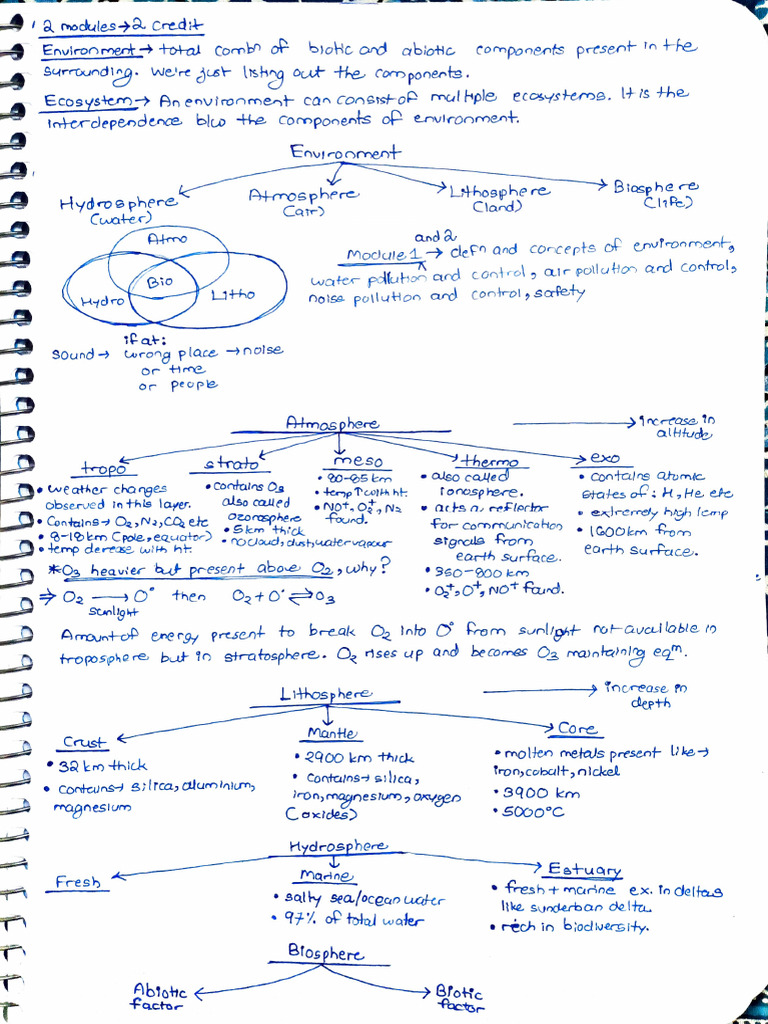 2 modules → 2 credit
Environment → total combⁿ of biotic and abiotic components present in the
surrounding. We're just listing out the components.
Ecosystem → An environment can consist of multiple ecosystems. It is the
interdependence b/w the components of environment.
Environment
Hydrosphere (water)
Atmosphere (air)
Lithosphere (land)
Biosphere (life)
Atmo
Bio
Hydro
Litho
and 2
Module 1 → defn and concepts of environment,
water pollution and control, air pollution and control,
noise pollution and control, safety
if at:
sound → wrong place → noise
or time
or people
Atmosphere
→ increase in altitude
tropo
• weather changes
observed in this layer.
• Contains → O₂, N₂, CO₂ etc
• 8-18 km (pole, equator)
• temp derease with ht.
strato
• contains O₃
also called
ozonosphere
• 5 km thick
• no cloud, dust, water vapour
meso
• 80-85 km
• temp ↑ with ht.
• NO⁺, O₂⁺, N₂
found.
thermo
• also called
ionosphere.
• acts a reflector
for communication
signals from
earth surface.
• 350-800 km
• O₂⁺, O⁺, NO⁺ found.
exo
• contains atomic
states of: H, He etc
• extremely high temp
• 1600 km from
earth surface.
*O₃ heavier but present above O₂, why?
⇒ O₂ → O• then O₂ + O• ⇌ O₃
sunlight
Amount of energy present to break O₂ into O• from sunlight not available in
troposphere but in stratosphere. O₂ rises up and becomes O₃ maintaining eqᵐ.
Lithosphere
→ increase in depth
Crust
• 32 km thick
• contains → silica, aluminium,
magnesium
Mantle
• 2900 km thick
• contains → silica,
iron, magnesium, oxygen
(oxides)
Core
• molten metals present like →
iron, cobalt, nickel
• 3900 km
• 5000°C
Hydrosphere
Fresh
Marine
• salty sea/ocean water
• 97% of total water
Estuary
• fresh + marine ex. in deltas
like sunderban delta
• rech in biodiversity.
Biosphere
Abiotic factor
Biotic factor